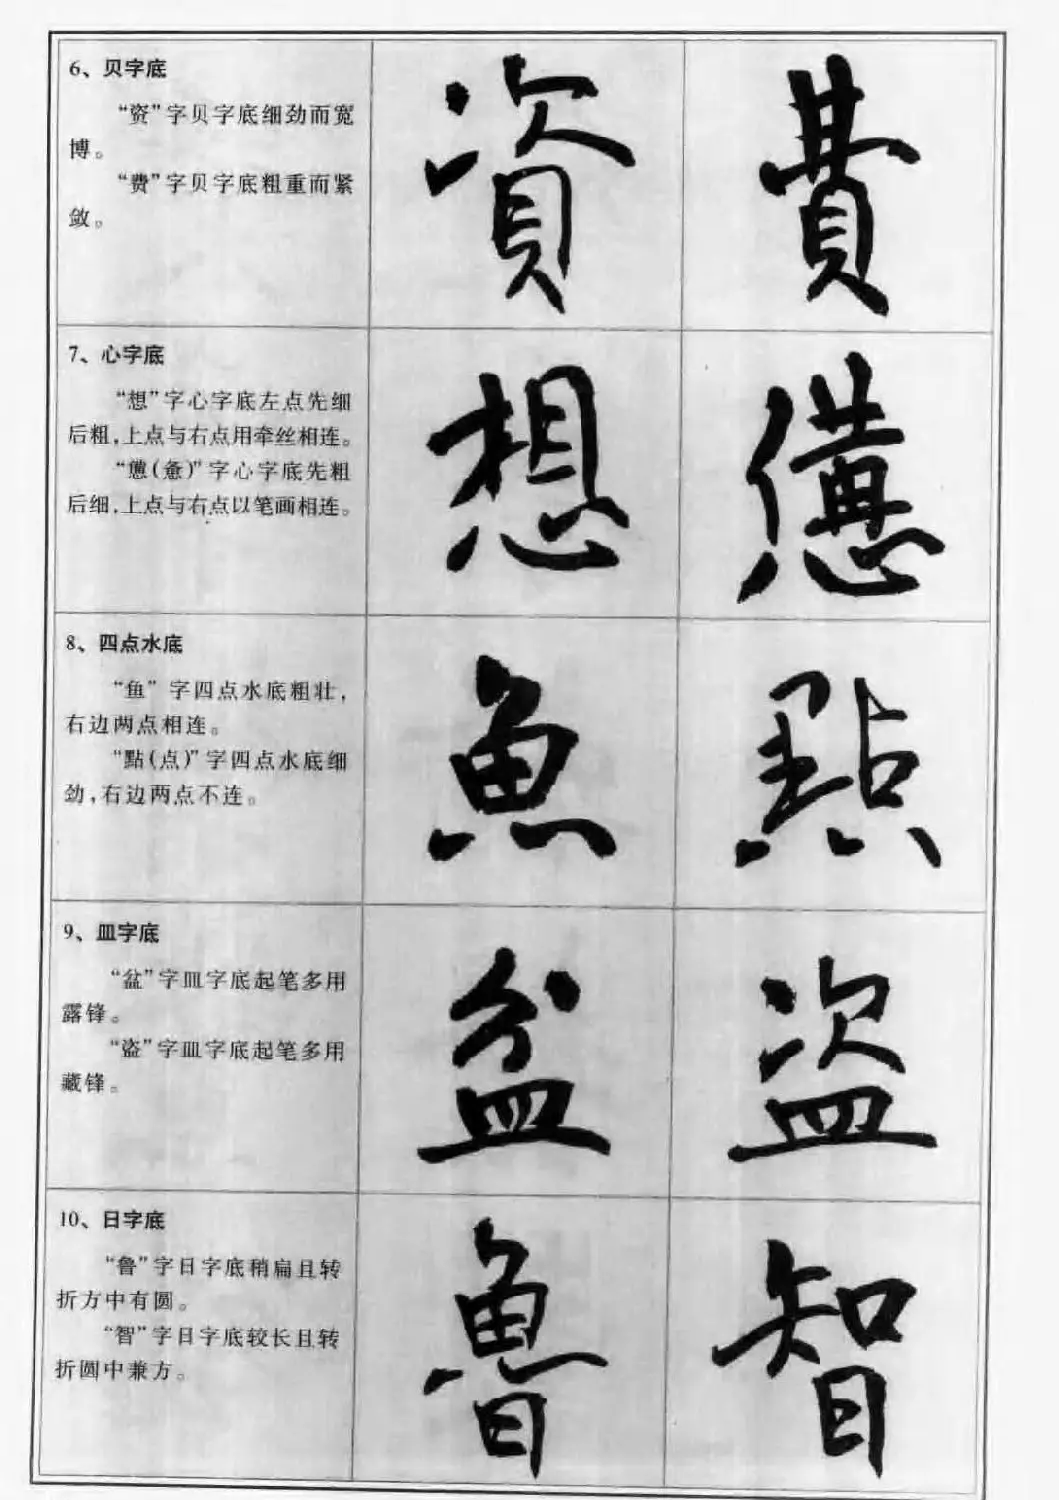 6、贝字底
“资”字贝字底细劲而宽
博。
“费”字贝字底粗重而紧
敛。
資 費
7、心字底
“想”字心字底左点先细
后粗，上点与右点用牵丝相连。
字心字底先粗
后细，上点与右点以笔画相连。
想
8、四点水底
“鱼”字四点水底粗壮，
右边两点相连。
“點（点）”字四点水底细
劲，右边两点不连。
魚 點
9、皿字底
“盆”字皿字底起笔多用
露锋。
“盗”字皿字底起笔多用
藏锋。
盆 盗
10、日字底
“鲁”字日字底稍扁且转
折方中有圆。
“智”字日字底较长且转
折圆中兼方。
魯 智